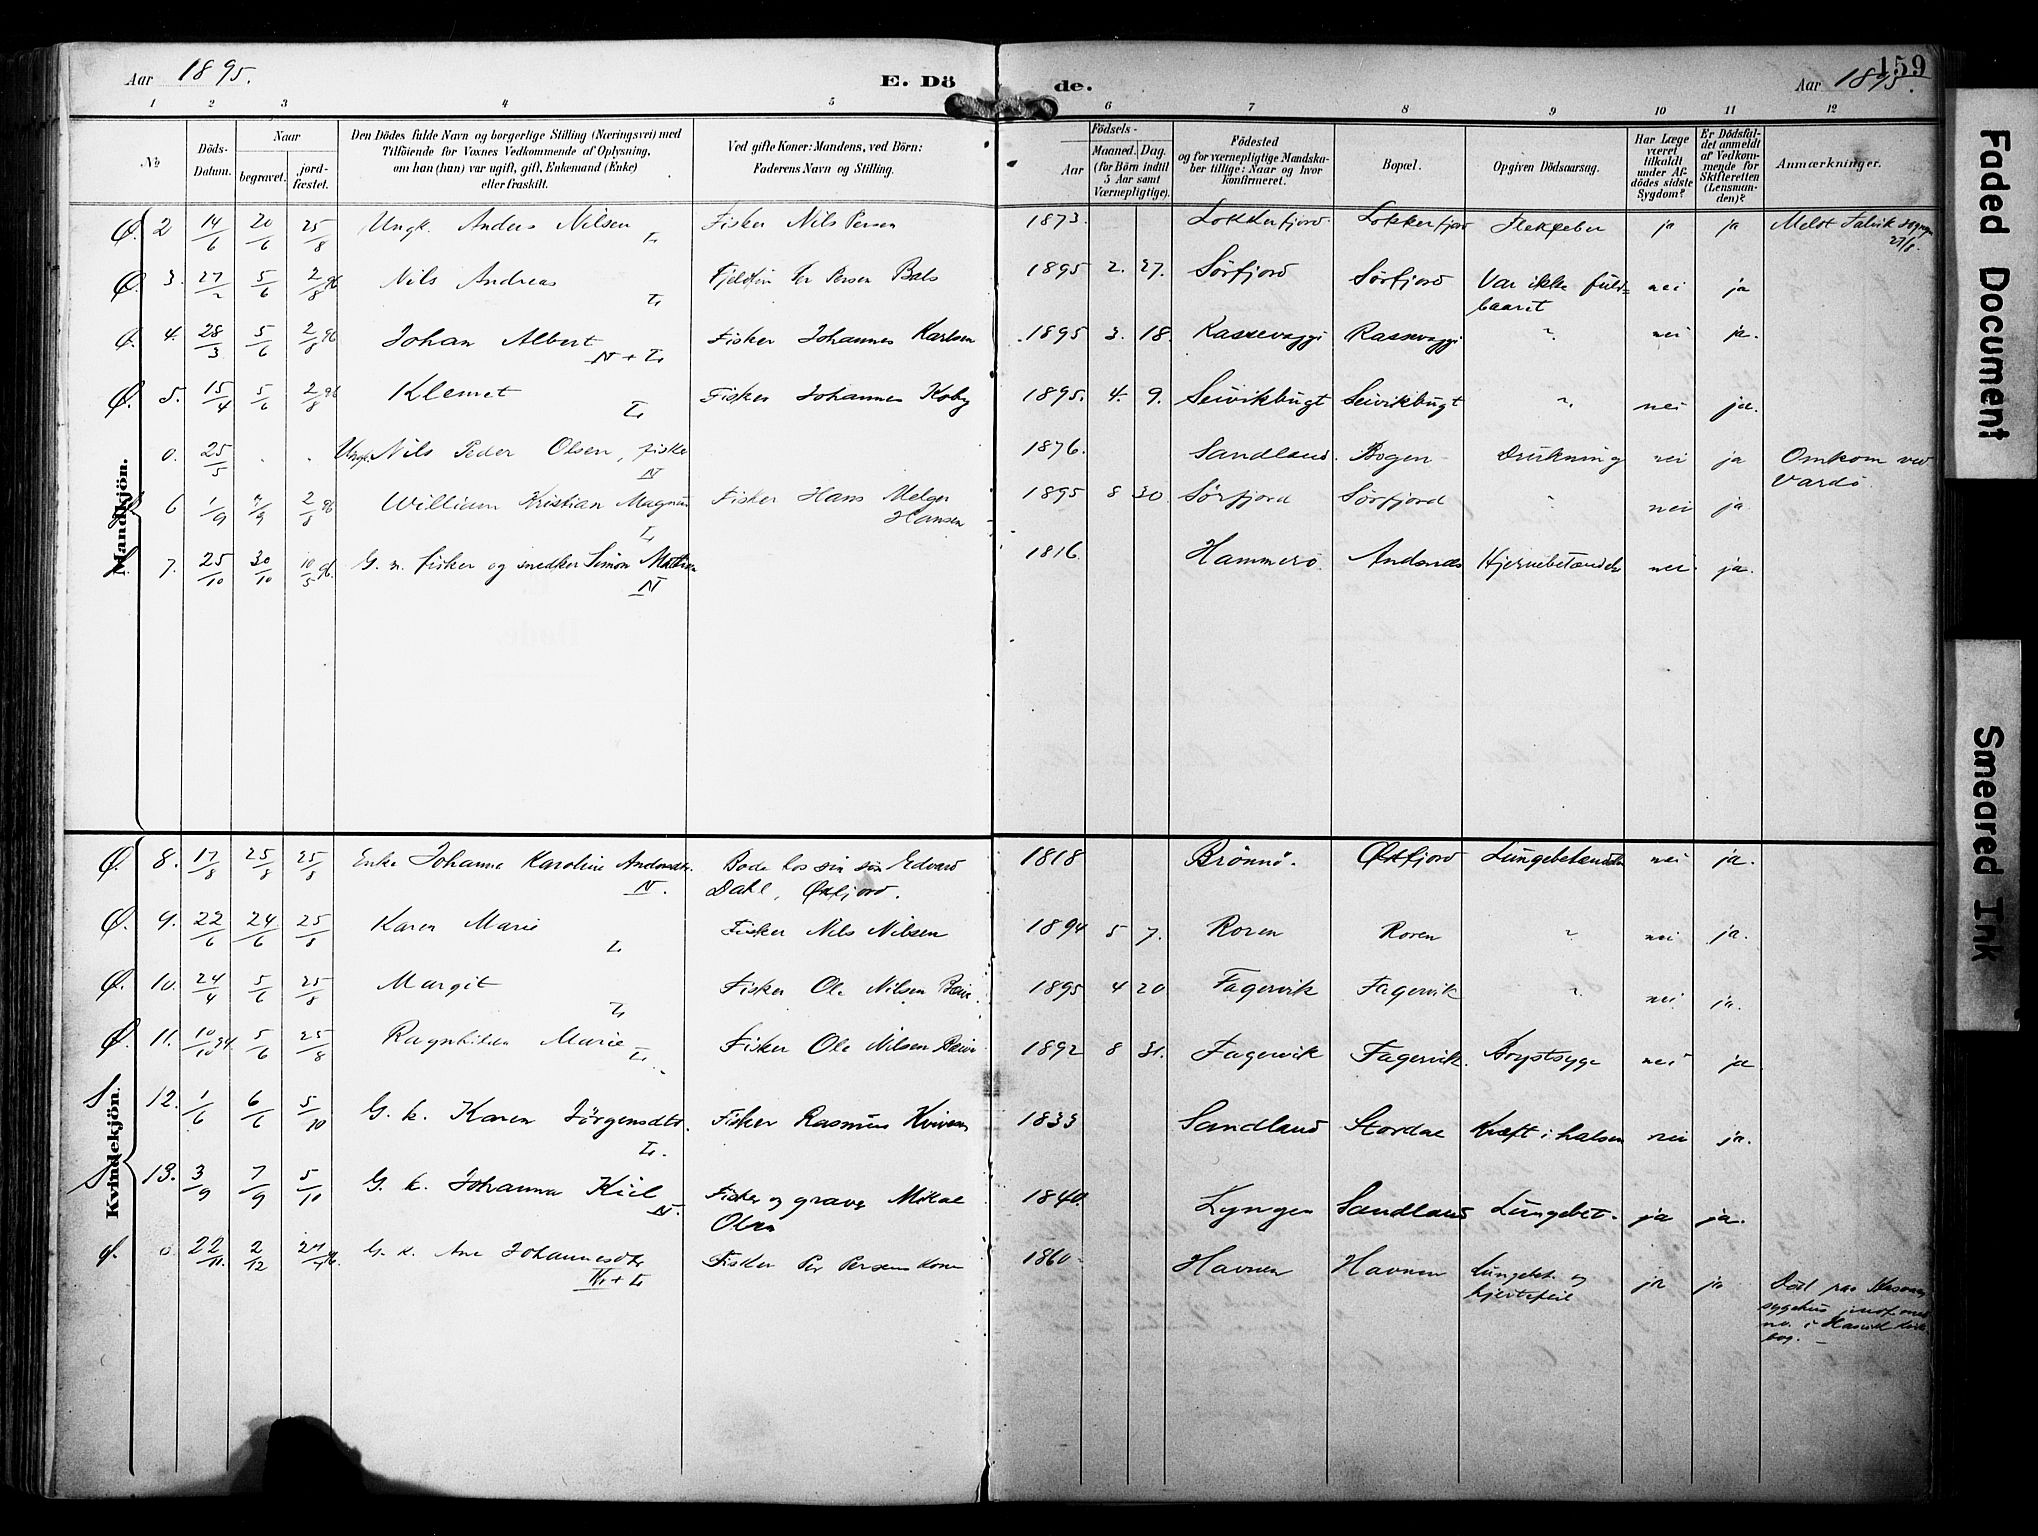 Aar 1895. E. Dö de. Aar 1895. 159
1 2 3 4 5 6 7 8 9 10 11 12
No
Döds-Datum.
Naar
begravet.
jordfæstet.
Den Dödes fulde Navn og borgerlige Stilling (Næringsvei) med
Tilföiende for Voxnes Vedkommende af Oplysning,
om han (han) var ugift, gift, Enkemand (Enke)
eller fraskilt.
Ved gifte Koner: Mandens, ved Börn:
Faderens Navn og Stilling.
Födsels-
Aar
Maaned. Dag.
(for Börn indtil
5 Aar samt
Værnepligtige).
Födested
og for værnepligtige Mandska-
ber tillige: Naar og hvor
konfirmeret.
Bopæl.
Opgiven Dödsaarsag.
Har Læge
været
tilkaldt
under Af-
dödes sidste
Sygdom?
Er Dödsfal-
det anmeldt
af Vedkom-
mende for
Skifteretten
(Lensman-
den)?
Anmærkninger.
Mandkjön.
Ø. 2 14/6 20/6 25/8 Ungk. Anders Nilsen L. Fisker Nils Persen 1873. Lokkerfjord Lokkerfjord ja ja
27/8.
Ø. 3. 27/2 5/6 2/8 96 Nils Andreas L. Per Persen Bals 1895 2. 27. Sörfjord Sörfjord Var ikke fuld= nei ja
baaret
Ø. 4. 28/3 5/6 2/8 96 Johan Albert Fisker Johannes Karlsen 1895 3. 18. Kassevaggi Rassevaggi " nei ja.
N + L.
Ø. 5. 15/4 5/6 2/8 96 Klemet L. Fisker Johannes Koby 1895. 4. 9. Seivikbugt Seivikbugt " nei ja.
0. 25/5 . . Ungk. Nils Peder Olsen, fisker 1876. Sandland Bogen Drukning nei ja Omkom ved
N Vardø.
6 1/9 2/8 96 William Kristian Magnus Fisker Hans Melger 1895 8 30. Sörfjord Sörfjord " nei ja
L. Hansen
7. 25/10 30/10 10/5 96. G. m. fisker og snedker Simon 1816. Hammerö. Andsnes nei ja.
N
Kvindekjön.
Ø. 8. 17/8 25/8 25/8 Enke Johanna Karoline Andersdtr. Bode hos sin sön Edvard 1818 Brönnö. Øksfjord Lungebetændelse nei ja.
N. Dahl, Øksfjord.
Ø. 9. 22/6 24/6 25/8 Karen Marie L. Fisker Nils Nilsen 1894 5 7. Roren Roren " nei ja.
Ø. 10. 24/4 5/6 25/8 Margit L. Fisker Ole Nilsen 1895 4 20 Fagervik Fagervik " nei ja.
Ø. 11. 10/10 94. 5/6 25/8 Ragnhilda Marie L. Fisker Ole Nilsen 1892 8 31. Fagervik Fagervik. Brystsyge nei ja
S 12. 1/6 6/6 5/10 G. k. Karen Jörgensdtr. Fisker Rasmus 1833 Sandland Stordal Kræft i halsen nei ja.
L.
S 13. 3/9 7/9 5/10 G. k. Johanna Kiil N. Fisker og graver Mikal 1840. Lyngen Sandland Lungebet. ja ja.
Olsen
0. 22/11. 2/12 G. k. Ane Johannesdtr Fisker Per Persens kone 1860. Havnen Havnen Lungebet. og ja ja Död paa
+ L. hjertefeil sygehus
bog. –
Faded Document
Smeared Ink